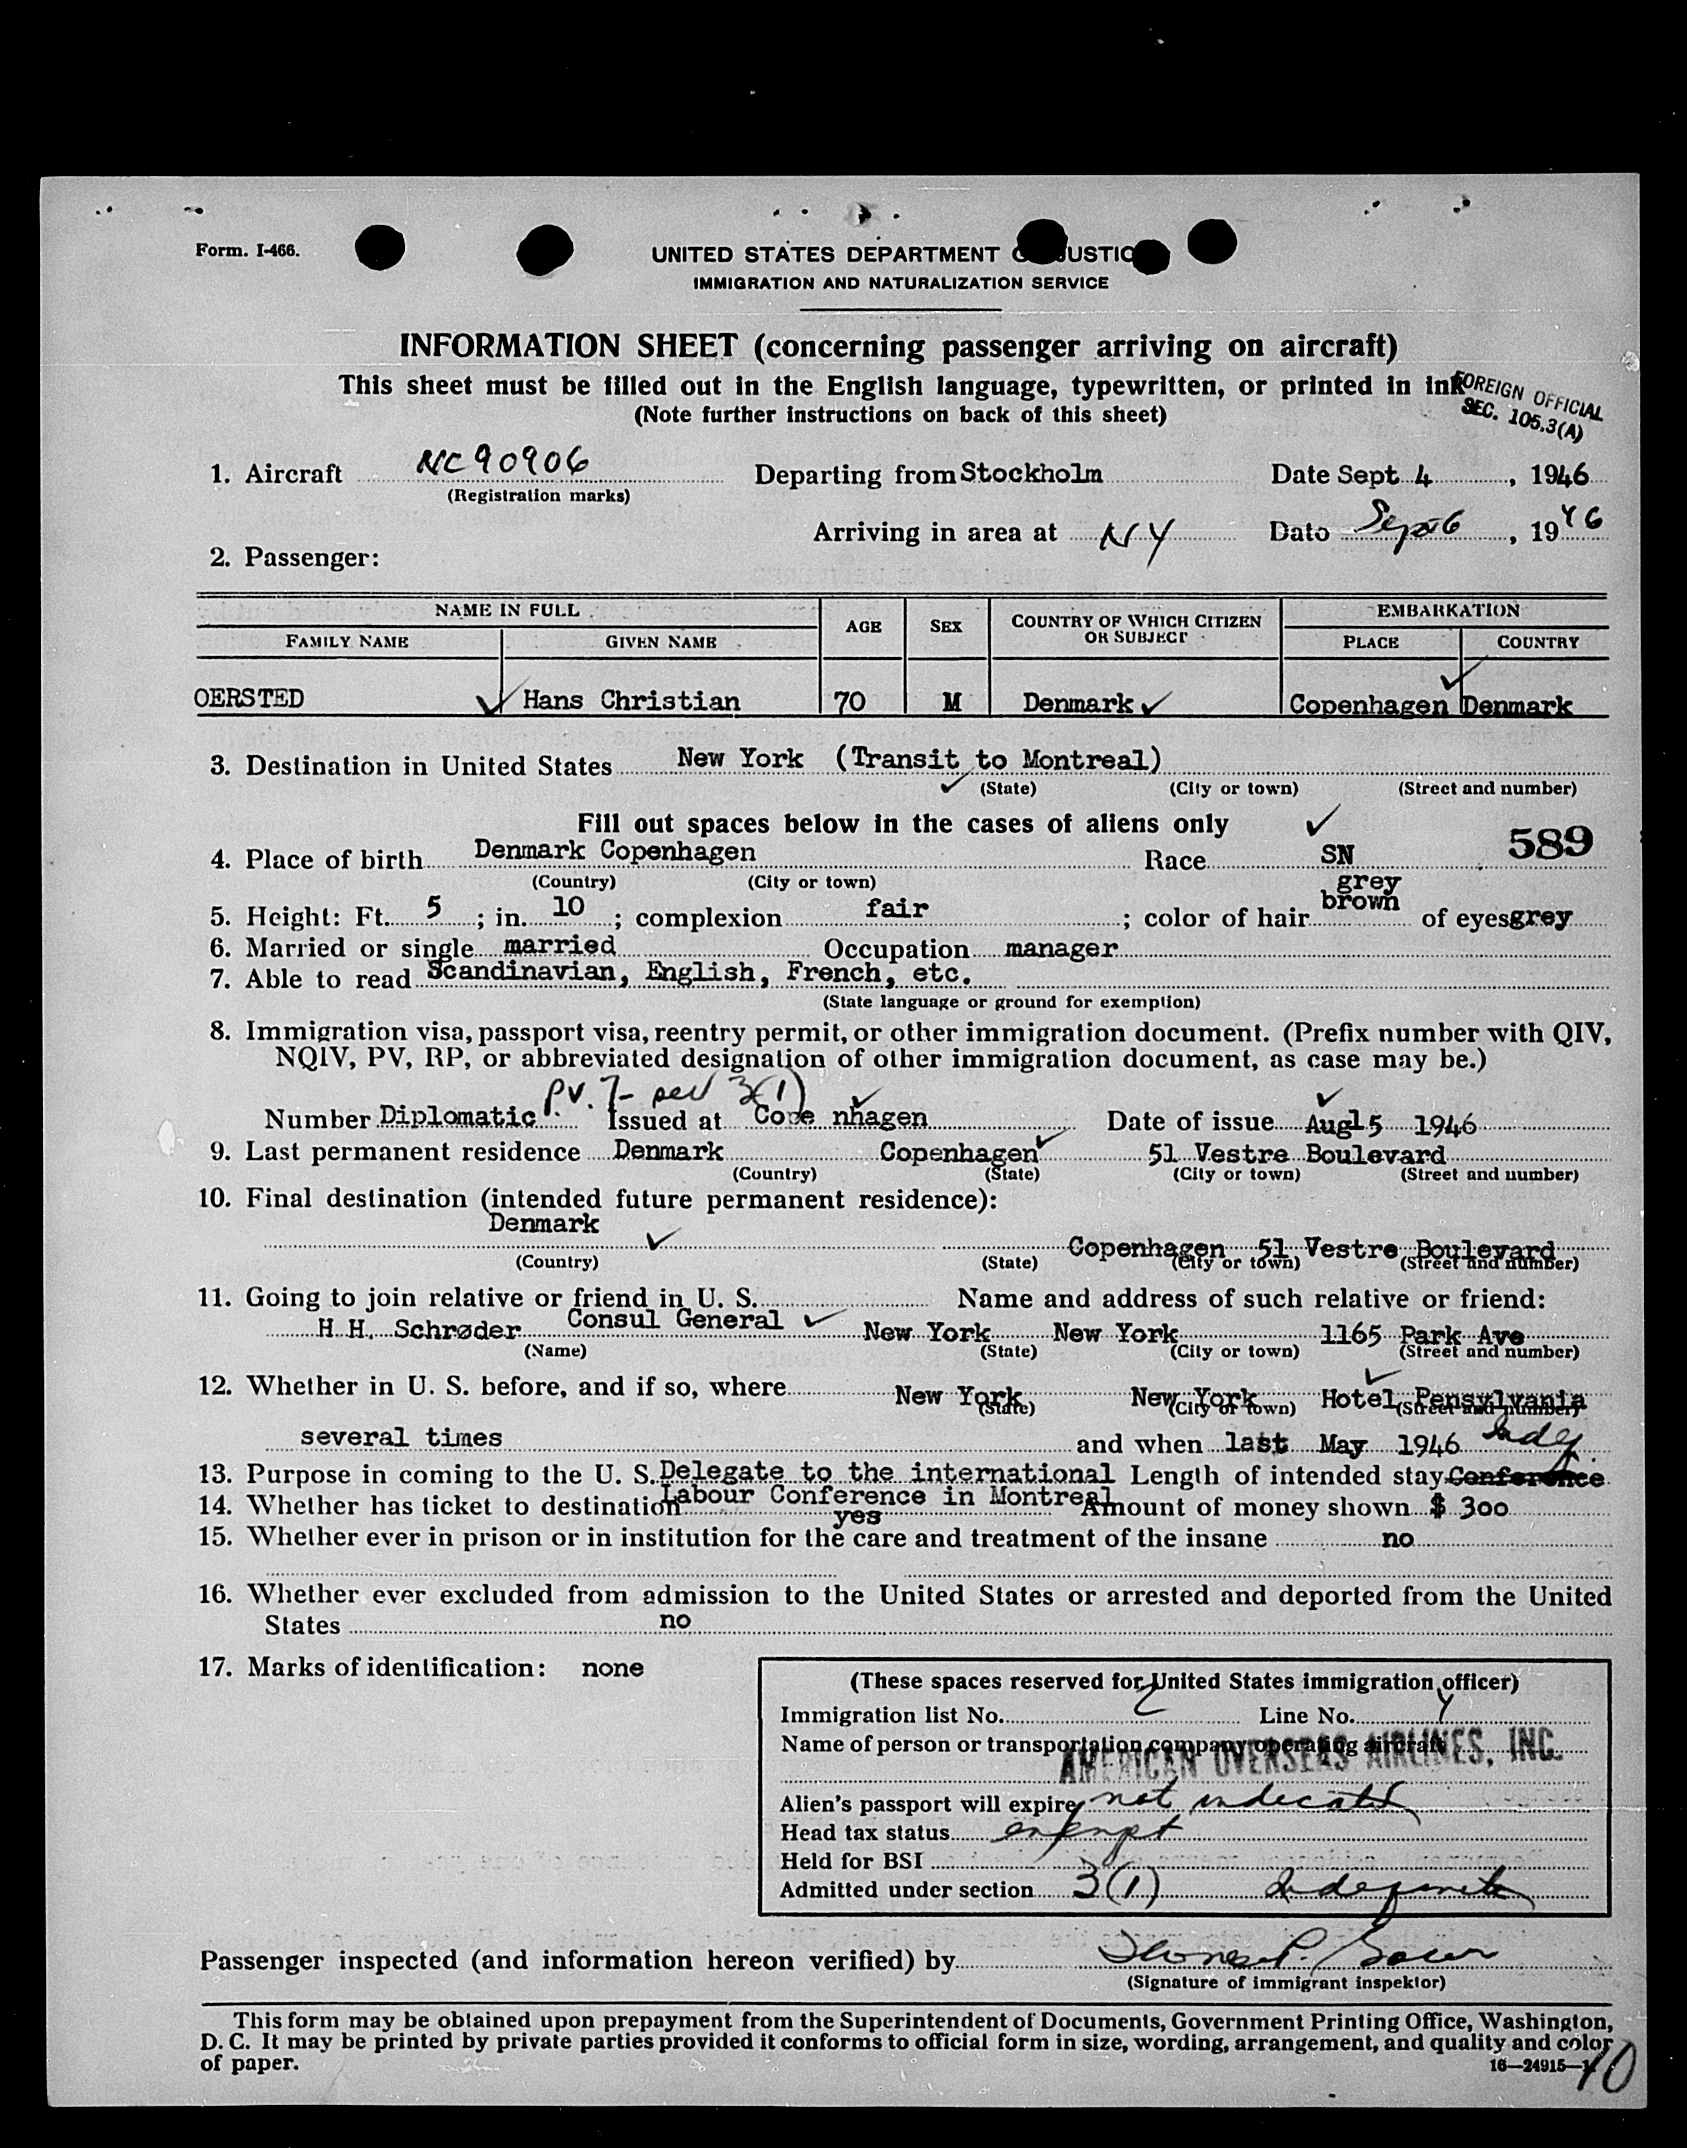 Form. I-466.
UNITED STATES DEPARTMENT O JUSTIC
IMMIGRATION AND NATURALIZATION SERVICE
INFORMATION SHEET (concerning passenger arriving on aircraft)
This sheet must be filled out in the English language, typewritten, or printed in ink
(Note further instructions on back of this sheet)
FOREIGN OFFICIAL
SEC. 105.3(A)
1. Aircraft NC90906 Departing from Stockholm Date Sept 4, 1946
(Registration marks)
Arriving in area at NY Date Sept 6, 1946
2. Passenger:
NAME IN FULL AGE SEX COUNTRY OF WHICH CITIZEN OR SUBJECT EMBARKATION
FAMILY NAME GIVEN NAME PLACE COUNTRY
OERSTED Hans Christian 70 M Denmark Copenhagen Denmark
3. Destination in United States New York (Transit to Montreal)
(State) (City or town) (Street and number)
Fill out spaces below in the cases of aliens only
589
4. Place of birth Denmark Copenhagen Race SN
(Country) (City or town)
grey
5. Height: Ft. 5; in. 10; complexion fair; color of hair brown of eyes grey
6. Married or single married Occupation manager
7. Able to read Scandinavian, English, French, etc.
(State language or ground for exemption)
8. Immigration visa, passport visa, reentry permit, or other immigration document. (Prefix number with QIV,
NQIV, PV, RP, or abbreviated designation of other immigration document, as case may be.)
PV. 3(1)
Number Diplomatic Issued at Cope nhagen Date of issue Aug15 1946
9. Last permanent residence Denmark Copenhagen 51 Vestre Boulevard
(Country) (State) (City or town) (Street and number)
10. Final destination (intended future permanent residence):
Denmark
Copenhagen 51 Vestre Boulevard
(Country) (State) (City or town) (Street and number)
11. Going to join relative or friend in U. S. Name and address of such relative or friend:
H.H. Schrøder Consul General New York New York 1165 Park Ave
(Name) (State) (City or town) (Street and number)
12. Whether in U. S. before, and if so, where New York New York Hotel Pensylvania
(State) (City or town) (Street and number)
several times and when last May 1946
13. Purpose in coming to the U. S. Delegate to the international Length of intended stay Conference
Labour Conference in Montreal
14. Whether has ticket to destination yes Amount of money shown $ 300
15. Whether ever in prison or in institution for the care and treatment of the insane no
16. Whether ever excluded from admission to the United States or arrested and deported from the United
States no
17. Marks of identification: none
(These spaces reserved for United States immigration officer)
Immigration list No. 2 Line No. 4
Name of person or transportation company operating aircraft
AMERICAN OVERSEAS AIRLINES, INC.
Alien's passport will expire not indicated
Head tax status exempt
Held for BSI
Admitted under section 3(1) Indefinite
Passenger inspected (and information hereon verified) by
(Signature of immigrant inspektor)
This form may be obtained upon prepayment from the Superintendent of Documents, Government Printing Office, Washington,
D. C. It may be printed by private parties provided it conforms to official form in size, wording, arrangement, and quality and color
of paper.
16—24915—1
10